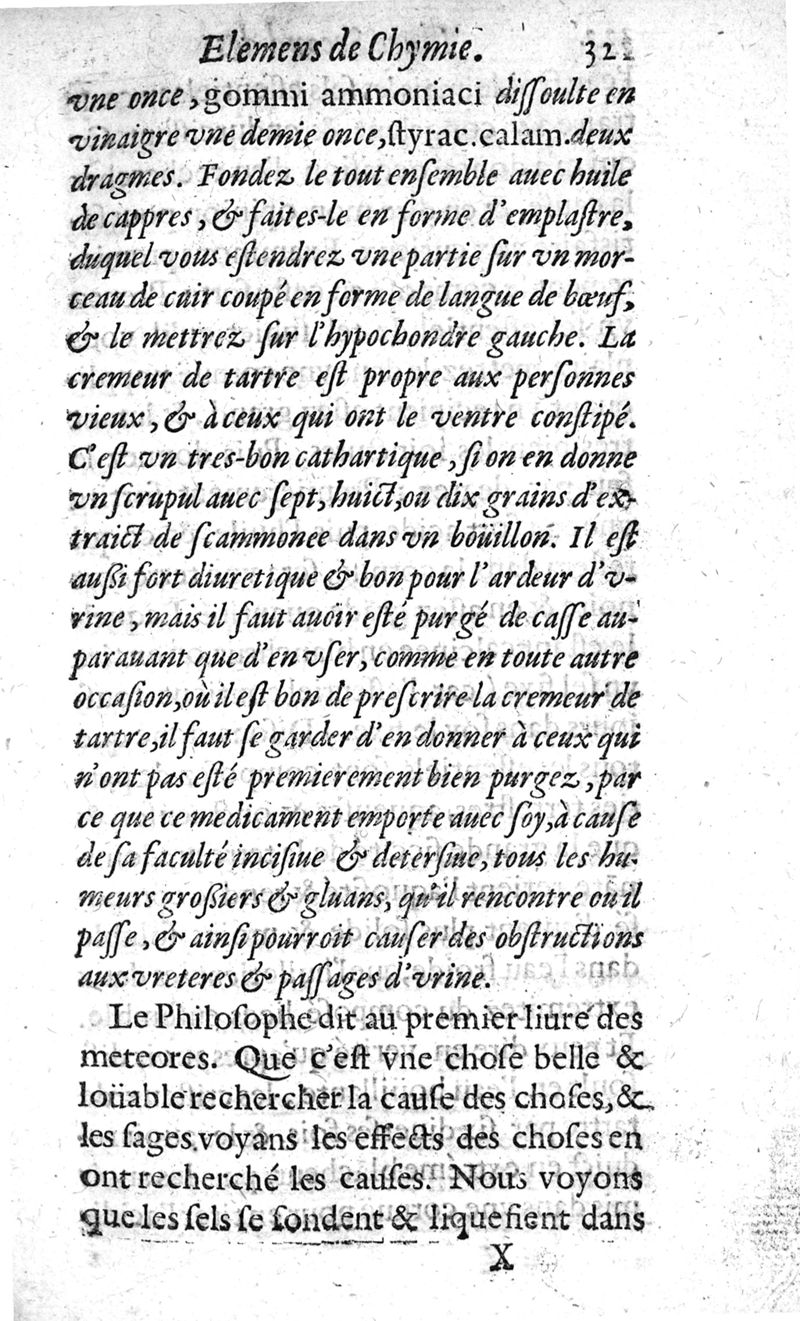 Elemens de Chymie. 321
vne once, gommi ammoniaci diſſoulte en
vinaigre vne demie once, ſtyrac. calam. deux
dragmes. Fondez le tout enſemble auec huile
de cappres, & faites-le en forme d'emplaſtre,
duquel vous eſtendrez vne partie ſur vn mor-
ceau de cuir coupé en forme de langue de bœuf,
& le mettrez ſur l'hypochondre gauche. La
cremeur de tartre eſt propre aux perſonnes
vieux, & à ceux qui ont le ventre conſtipé.
C'eſt vn tres-bon cathartique, ſi on en donne
vn ſcrupul auec ſept, huict, ou dix grains d'ex-
traict de ſcammonee dans vn boüillon. Il eſt
auſſi fort diuretique & bon pour l'ardeur d'v-
rine, mais il faut auoir eſté purgé de caſſe au-
parauant que d'en vſer, comme en toute autre
occaſion, où il eſt bon de preſcrire la cremeur de
tartre, il faut ſe garder d'en donner à ceux qui
n'ont pas eſté premierement bien purgez, par
ce que ce medicament emporte auec ſoy, à cauſe
de ſa faculté inciſiue & deterſiue, tous les hu-
meurs groſſiers & gluans, qu'il rencontre ou il
paſſe, & ainſi pourroit cauſer des obſtructions
aux vreteres & paſſages d'vrine.
Le Philoſophe dit au premier liure des
meteores. Que c'eſt vne choſe belle &
loüable rechercher la cauſe des choſes, &
les ſages voyans les effects des choſes en
ont recherché les cauſes. Nous voyons
que les ſels ſe fondent & liquefient dans
X